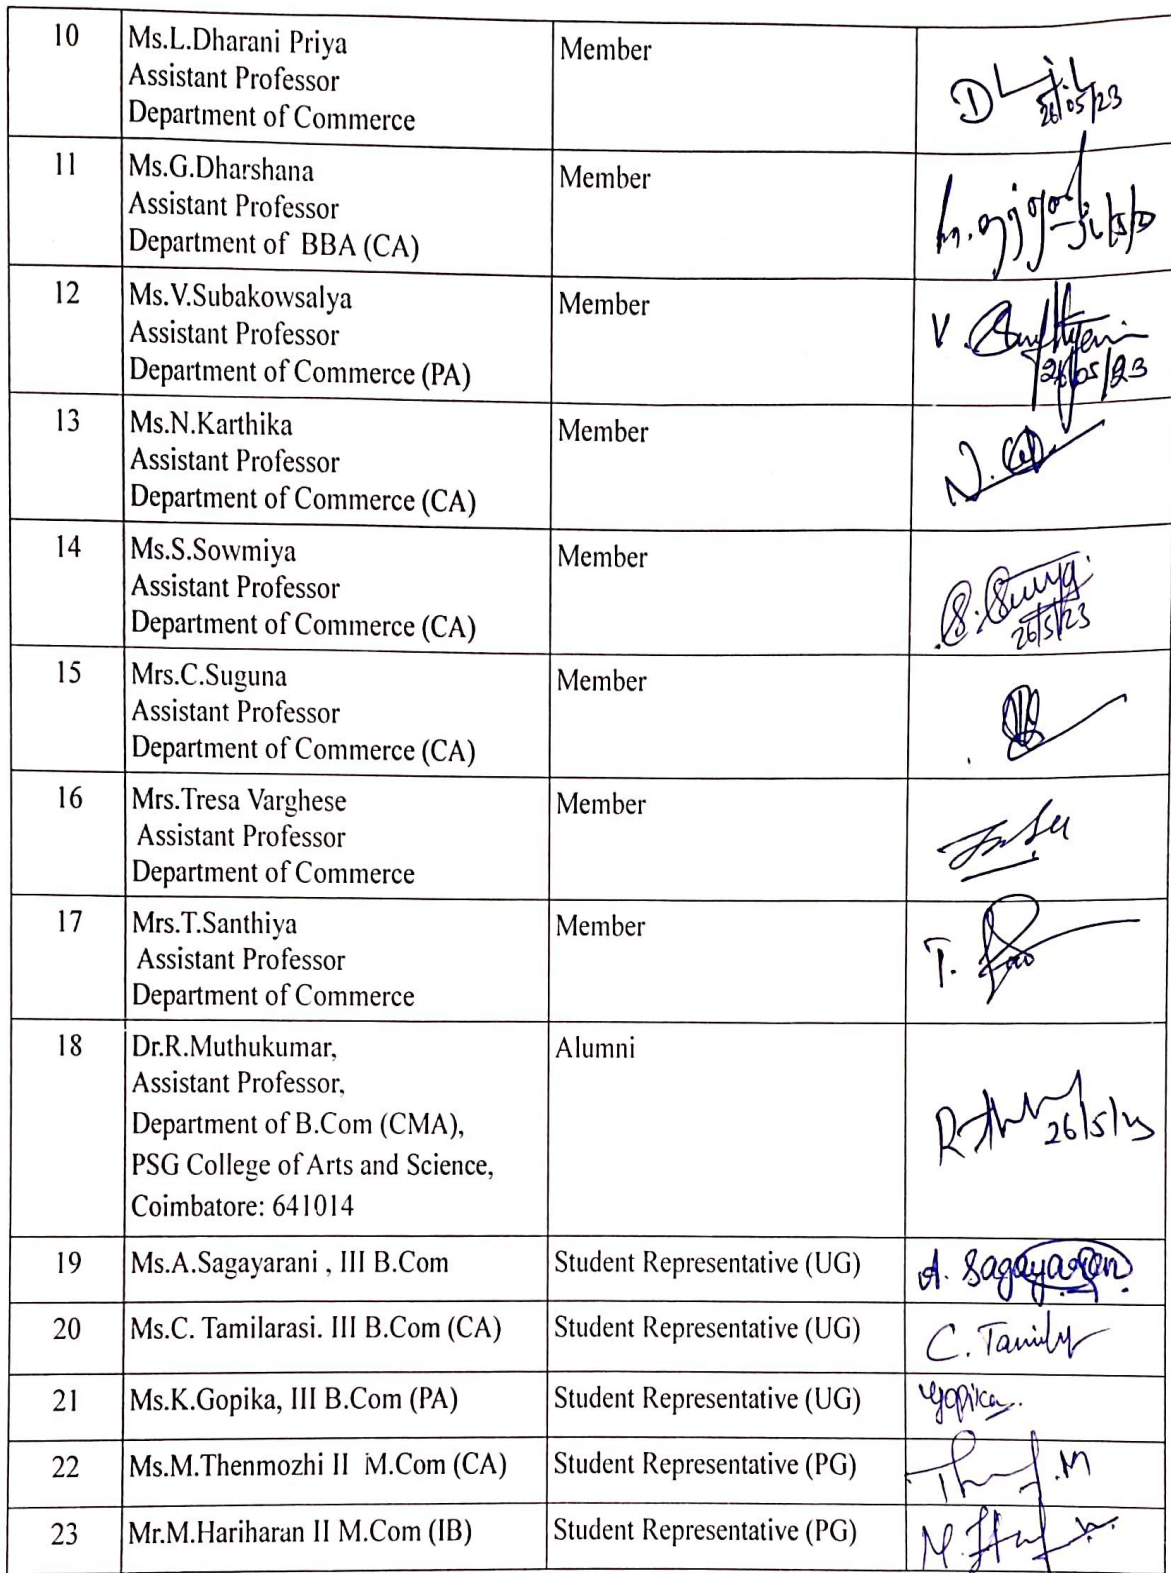 10 Ms.L.Dharani Priya Member
Assistant Professor
Department of Commerce
26/05/23
11 Ms.G.Dharshana Member
Assistant Professor
Department of BBA (CA)
12 Ms.V.Subakowsalya Member
Assistant Professor
Department of Commerce (PA)
V.
26/05/23
13 Ms.N.Karthika Member
Assistant Professor
Department of Commerce (CA)
N.
14 Ms.S.Sowmiya Member
Assistant Professor
Department of Commerce (CA)
26/5/23
15 Mrs.C.Suguna Member
Assistant Professor
Department of Commerce (CA)
16 Mrs.Tresa Varghese Member
Assistant Professor
Department of Commerce
17 Mrs.T.Santhiya Member
Assistant Professor
Department of Commerce
T.
18 Dr.R.Muthukumar, Alumni
Assistant Professor,
Department of B.Com (CMA),
PSG College of Arts and Science,
Coimbatore: 641014
26/5/23
19 Ms.A.Sagayarani , III B.Com Student Representative (UG) A. Sagayarani
20 Ms.C. Tamilarasi. III B.Com (CA) Student Representative (UG) C.
21 Ms.K.Gopika, III B.Com (PA) Student Representative (UG) Gopika.
22 Ms.M.Thenmozhi II M.Com (CA) Student Representative (PG) .M
23 Mr.M.Hariharan II M.Com (IB) Student Representative (PG) M.